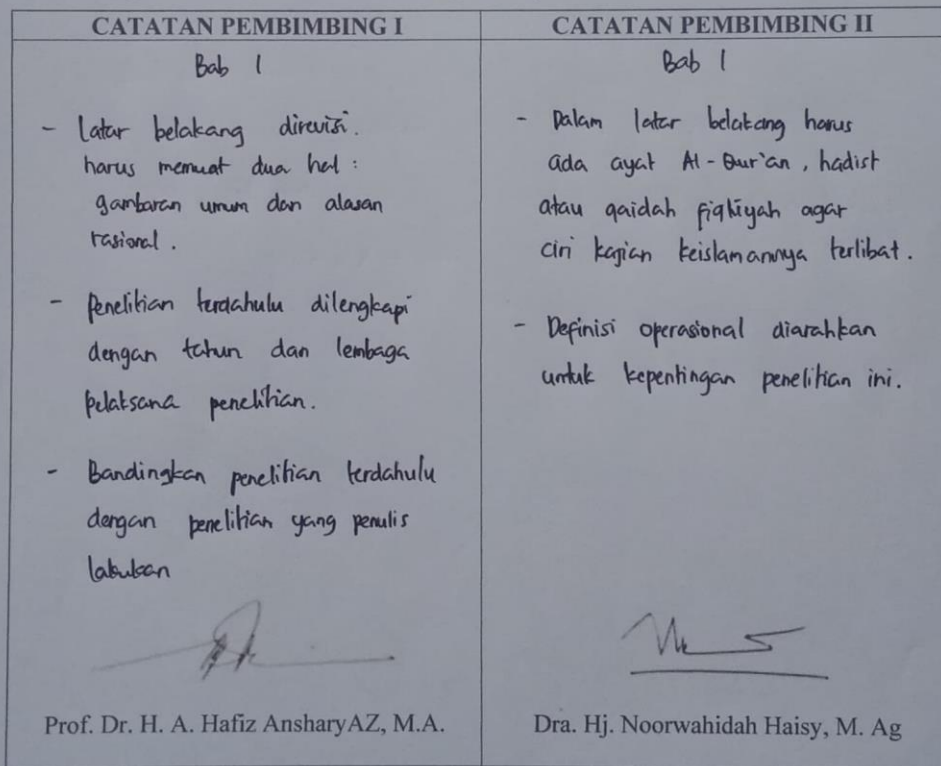 CATATAN PEMBIMBING I
Bab 1
- Latar belakang direvisi.
harus memuat dua hal :
gambaran umum dan alasan
rasional.
- Penelitian terdahulu dilengkapi
dengan tahun dan lembaga
pelaksana penelitian.
- Bandingkan penelitian terdahulu
dengan penelitian yang penulis
lakukan
Prof. Dr. H. A. Hafiz AnsharyAZ, M.A.
CATATAN PEMBIMBING II
Bab 1
- Dalam latar belakang harus
ada ayat Al-Qur'an, hadist
atau qaidah fiqhiyah agar
ciri kajian keislamannya terlibat.
- Definisi operasional diarahkan
untuk kepentingan penelitian ini.
Dra. Hj. Noorwahidah Haisy, M. Ag